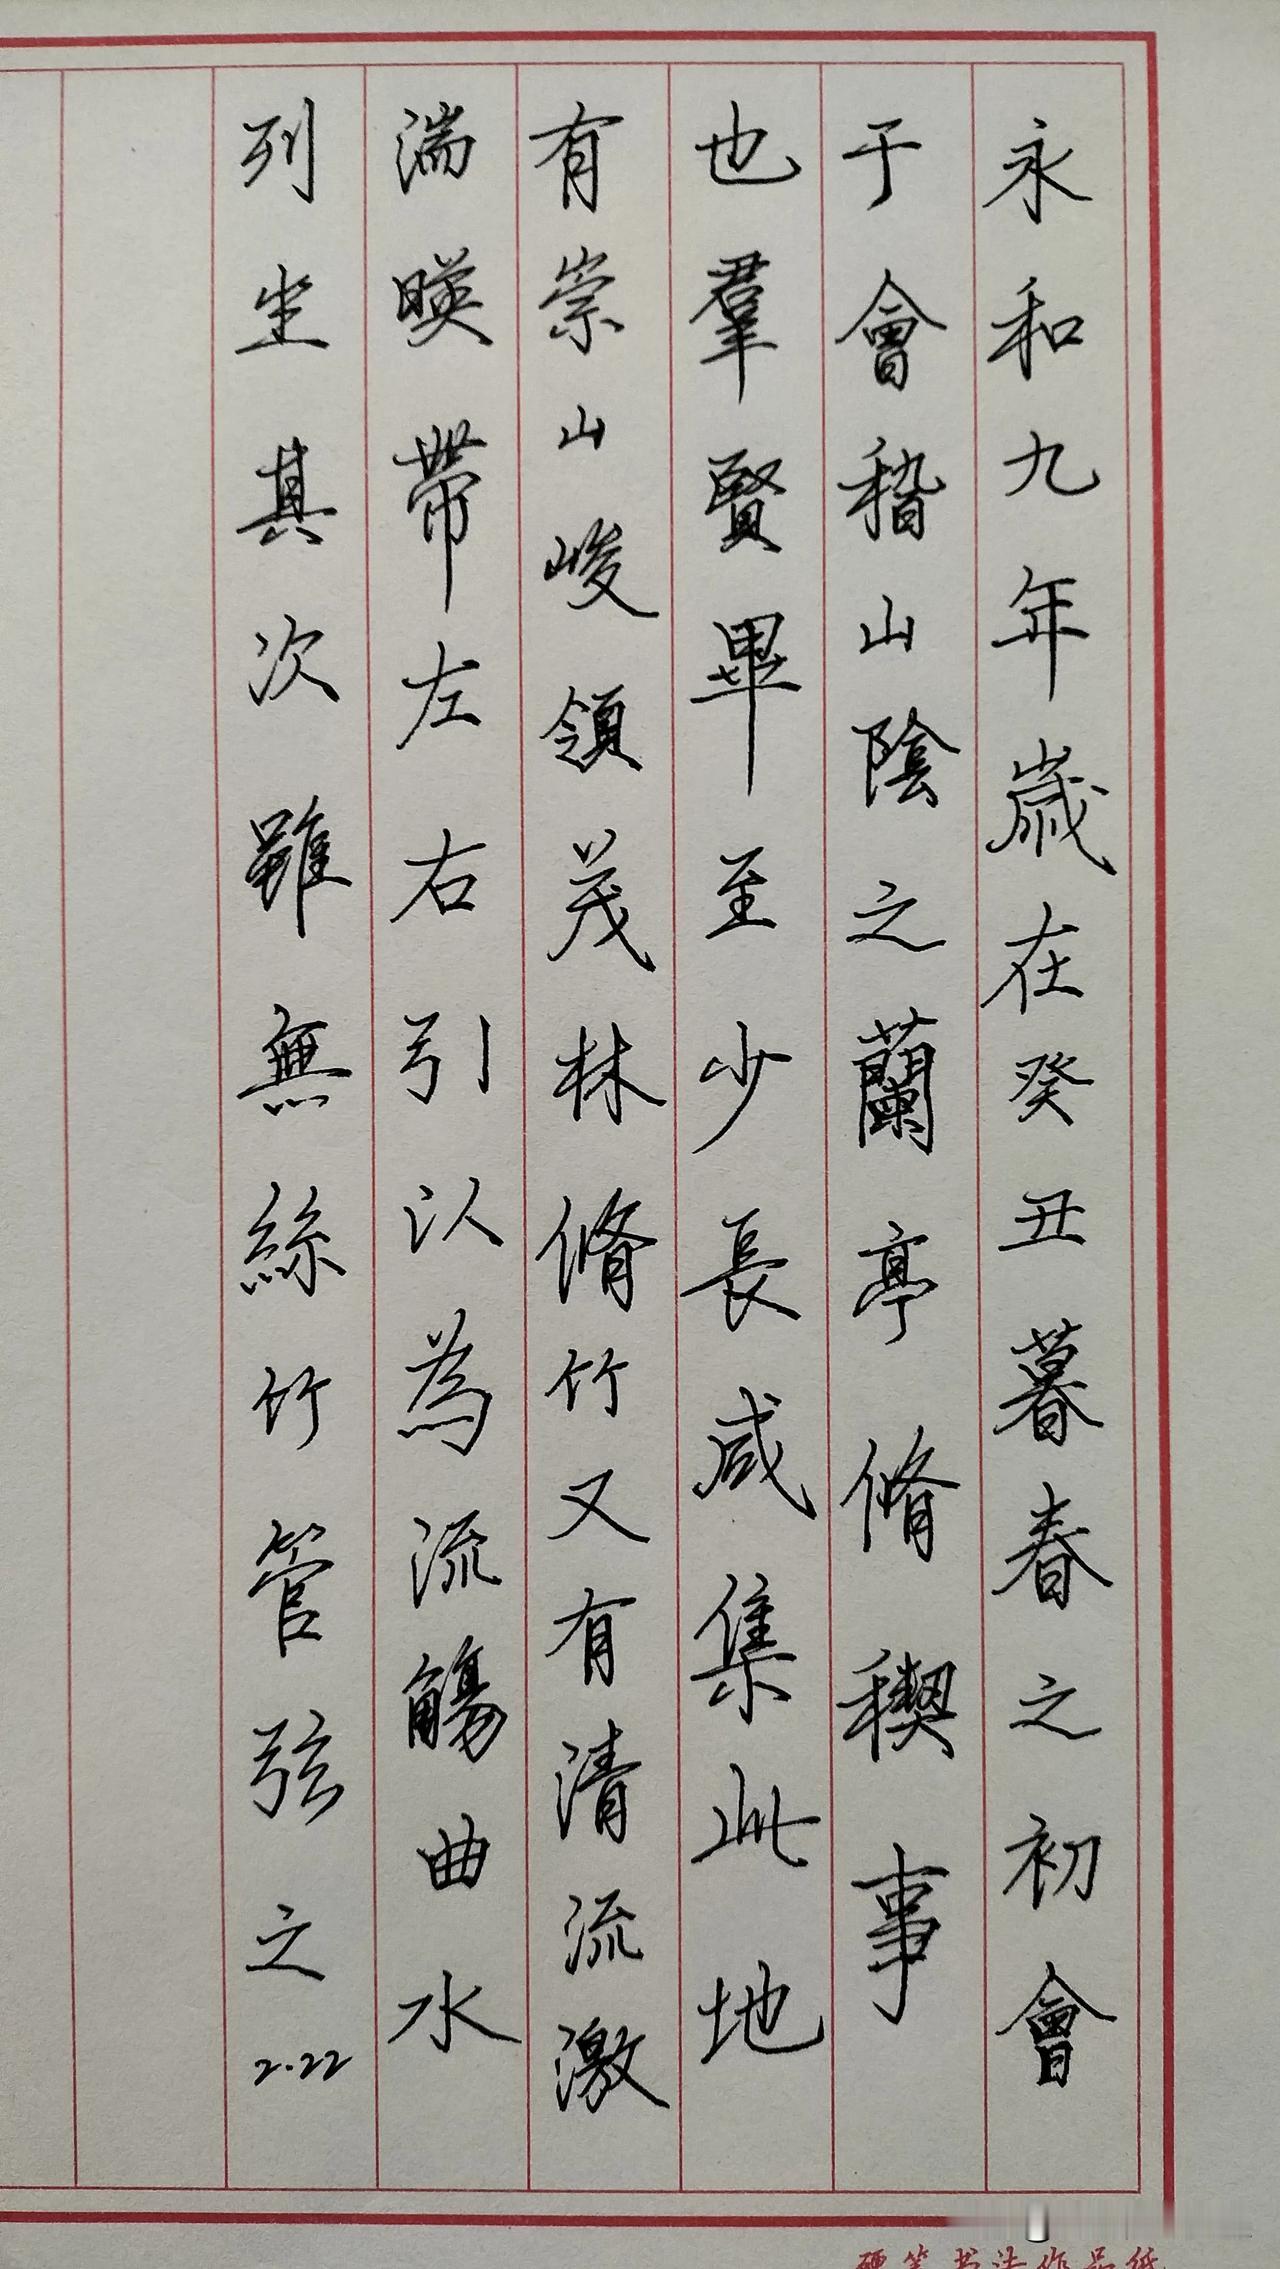 永和九年歲在癸丑暮春之初會
于會稽山陰之蘭亭脩稧事
也羣賢畢至少長咸集此地
有崇山峻領茂林脩竹又有清流激
湍暎帶左右引以為流觴曲水
列坐其次雖無絲竹管弦之
2.22
硬笔书法作品纸